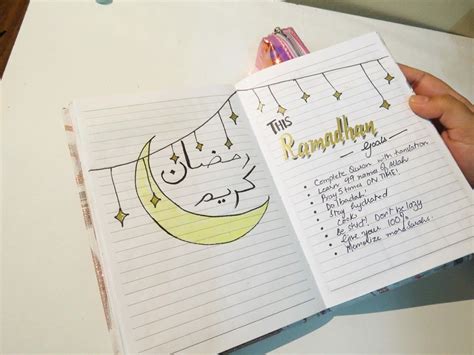 رمضان
كريم
THIS
Ramadhan
Goals
Complete Quran with translation
Learn 99 name of Allah
Pray 5 times ON TIME!
Do Ibadah
Stay hydrated
Cook
Be strict! Don't be lazy
Give your 100%
Memorize more Surahs